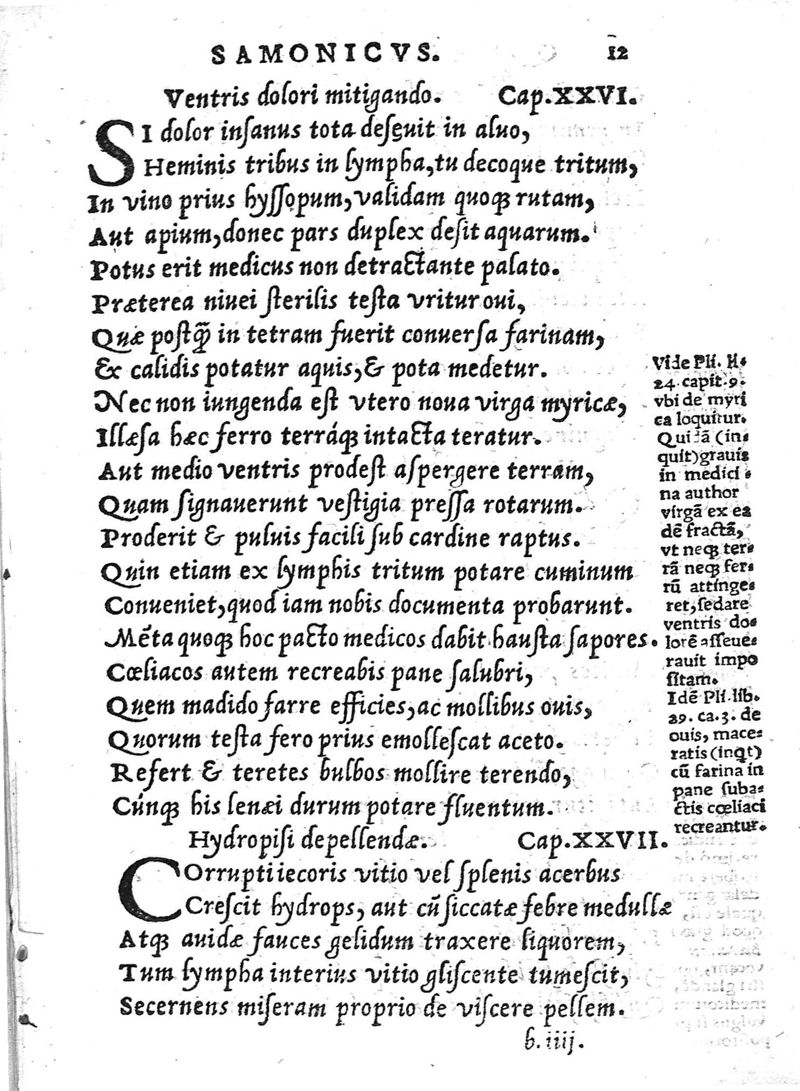 SAMONICVS. 12
Ventris dolori mitigando. Cap.XXVI.
SI dolor inſanus tota deſęuit in aluo,
Heminis tribus in lympha, tu decoque tritum,
In vino prius hyſſopum, validam quoqꝫ rutam,
Aut apium, donec pars duplex deſit aquarum.
Potus erit medicus non detractante palato.
Præterea niuei ſterilis teſta vritur oui,
Quæ poſtꝙ̃ in tetram fuerit conuerſa farinam,
Ex calidis potatur aquis, & pota medetur.
Nec non iungenda eſt vtero noua virga myricæ,
Illæſa hæc ferro terráqꝫ intacta teratur.
Aut medio ventris prodeſt aſpergere terram,
Quam ſignauerunt veſtigia preſſa rotarum.
Proderit & puluis facili ſub cardine raptus.
Quin etiam ex lymphis tritum potare cuminum
Conueniet, quod iam nobis documenta probarunt.
Mẽta quoqꝫ hoc pacto medicos dabit hauſta ſapores.
Cœliacos autem recreabis pane ſalubri,
Quem madido farre efficies, ac mollibus ouis,
Quorum teſta fero prius emolleſcat aceto.
Refert & teretes bulbos mollire terendo,
Cúnqꝫ his lenæi durum potare fluentum.
Vide Pli. li.
24 capit.9.
vbi de myri
ca loquitur.
Quidã (in⸗
quit)grauis
in medici⸗
na author
virgã ex ea
dẽ fractã,
vt neqꝫ ter⸗
rã neqꝫ fer⸗
rũ attinge⸗
ret, ſedare
ventris do⸗
lorẽ aſſeue⸗
rauit impo
ſitam.
Idẽ Pli.lib.
29. ca.3. de
ouis, mace⸗
ratis (inqt)
cũ farina in
pane ſuba⸗
ctis cœliaci
recreantur.
Hydropiſi depellendæ. Cap.XXVII.
COrrupti iecoris vitio vel ſplenis acerbus
Creſcit hydrops, aut cũ ſiccatæ febre medullæ
Atqꝫ auidæ fauces gelidum traxere liquorem,
Tum lympha interius vitio gliſcente tumeſcit,
Secernens miſeram proprio de viſcere pellem.
b.iiij.